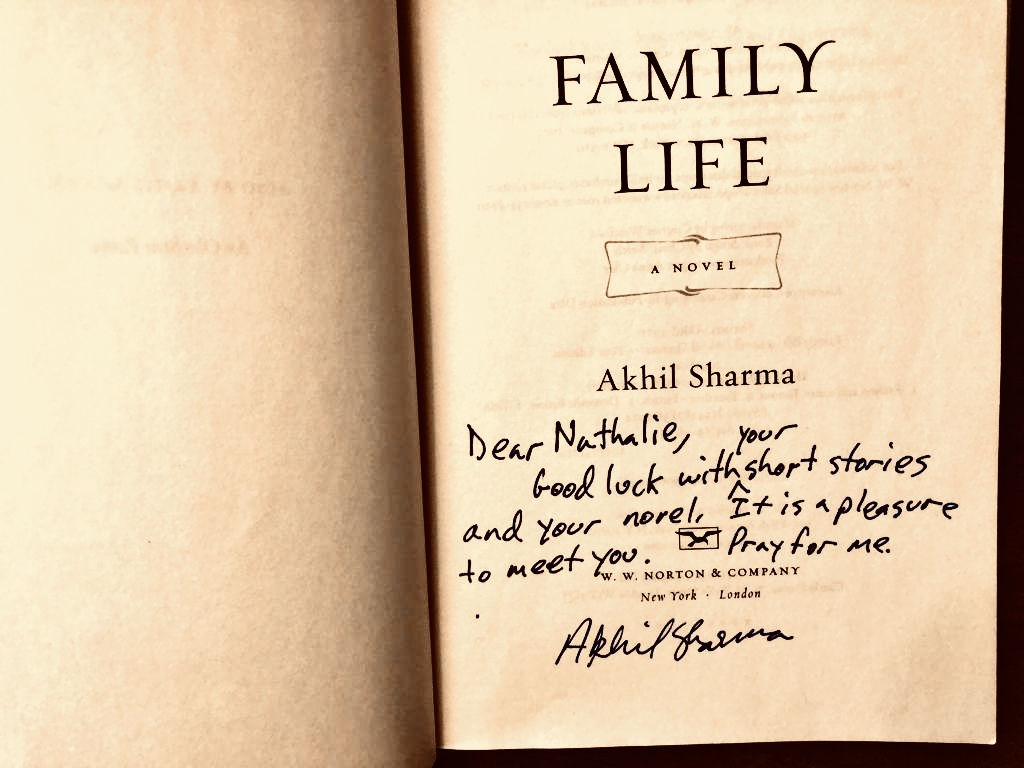 FAMILY
LIFE
A NOVEL
Akhil Sharma
Dear Nathalie,
Good luck with your short stories
and your novel. It is a pleasure
to meet you. Pray for me.
W. W. NORTON & COMPANY
New York · London
Akhil Sharma